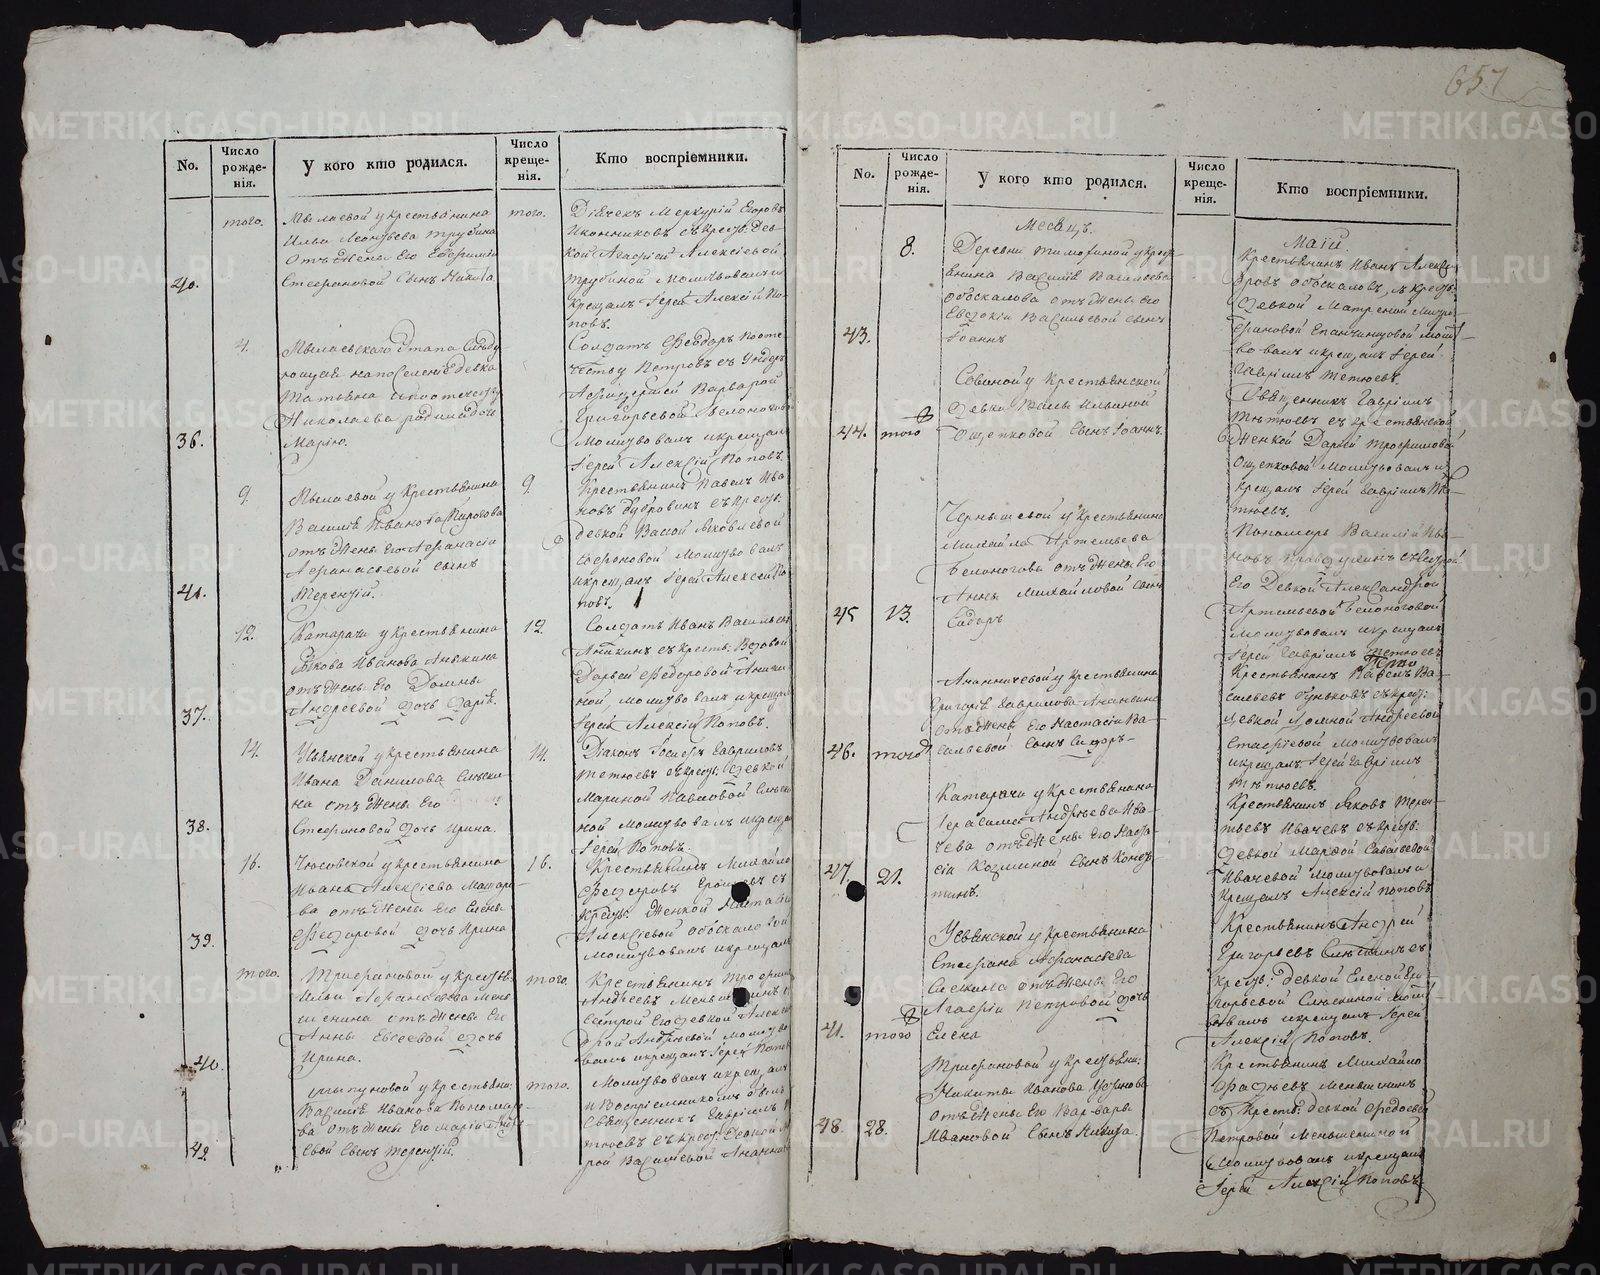 657
No.
Число рожде- нія.
У кого кто родился.
Число креще- нія.
Кто воспріемники.
того.
Мылаевой у крестьянина
Ильи Леонтьева Трубина
отъ жены его
40.
Стефановой сынъ Никита
того.
Діячекъ Меркурій Егоровъ
Иконниковъ съ крест: дев-
кой Агафіей Алексіевой
Трубиной молитвовалъ и
крещалъ Іерей Алексій По-
повъ.
4.
Татьяна
Николаева родила дочь
36.
Марію.
Солдатъ Феодоръ
Петровъ съ Ундеръ
Варварой
Григорьевой Белоногово
Молитвовалъ и крещалъ
Іерей Алексій Поповъ.
9.
Мылаевой у крестьянина
Василія Иванова
отъ жены его Афанасіи
Афанасьевой сынъ
41.
Терентій.
9.
Крестьянинъ Павелъ Ива
новъ Дубровинъ съ крест:
девкой Вассой Яковлевой
Софоновой Молитвовалъ
и крещалъ Іерей Алексей По
повъ.
12.
Катарачи у крестьянина
Якова Иванова Аникина
отъ жены его Домны
37.
Андреевой дочь Дарія.
12.
Солдатъ Иванъ Васильевъ
Аникинъ съ крест: вдовой
Дарьей Федоровой Аники
ной, молитвовалъ и крещалъ
Іерей Алексій Поповъ.
14.
Усьянской у крестьянина
Ивана Данилова Слѣски-
на отъ жены его
38.
Стефановой дочь Ирина.
14.
Діаконъ Іосифъ Гавриловъ
Тетюевъ съ крест: девкой
Мариной Павловой
ной Молитвовалъ и крещалъ
Іерей Поповъ.
16.
Чюсовской у крестьянина
Ивана Алексіева Макаро-
ва отъ жены его Елены
39.
Феодоровой дочь Ирина
16.
Крестьянинъ Михайло
Феодоровъ
крест: женкой Настасьи
Алексіевой Обоскаловой
Молитвовалъ и крещалъ
того.
Трифановой у крестья:
Ильи Афанасьева Мень
шенина отъ жены его
Анны Евсеевой дочь
40.
Ирина.
того.
Крестьянинъ Трофимъ
Андреевъ Меньшенинъ съ
сестрой его девкой Алексан
дрой Андреевой молитво
валъ и крещалъ Іерей Попов
у крестьяни:
Василія Иванова Пономаре-
ва отъ жены его Маріи
42.
вой сынъ Терентій.
того.
Молитвовалъ и крещалъ
и воспріемникомъ былъ
Священникъ Гавріилъ
тюевъ съ крест: девкой
рой Васильевой Ананьи
No.
Число рожде- нія.
У кого кто родился.
Число креще- нія.
Кто воспріемники.
Месяцъ.
Маій.
8.
Деревни Тимофиной у крест
янина Василія Васильева
Обоскалова отъ жены его
Евдокіи Васильевой сынъ
43.
Іоаннъ
Крестьянинъ Иванъ Алексан
дровъ Обоскаловъ, съ крест:
девкой Матреной Митро
фановой Епанчинцовой Молит-
вовалъ и крещалъ Іерей
Гавріилъ Тетюевъ.
Совиной у крестьянской
девки Ильиной
44.
того
Ощепковой сынъ Іоаннъ.
Священникъ Гавріилъ
Тетюевъ съ крестьянской
женкой Дарьей Трофимовой
Ощепковой Молитвовалъ и
крещалъ Іерей Гавріилъ Те
тюевъ.
Чернышевой у крестьянина
Михайла Артемьева
Белоногова отъ жены его
Анны Михайловой сынъ
45
13.
Сидоръ
Пономарь Василій Ива
новъ съ сестрой
его девкой Александрой
Артемьевой Белоноговой
Молитвовалъ и крещалъ
Іерей Гавріилъ Тетюевъ
Ананьичевой у крестьянина
Григорія Гаврилова Ананьина
отъ жены его Настасіи Ва-
46.
того
сильевой сынъ Сидоръ-
Крестьянинъ Павелъ Ва-
сильевъ Пуньковъ съ крест:
девкой Домной Андреевой
Стафіевой молитвовалъ
и крещалъ Іерей Гавріилъ
Тетюевъ.
Катарачи у крестьянина
Герасима Андреева Ива-
чева отъ жены его Наста
47
21.
сіи Козминой сынъ Конст
тинъ.
Крестьянинъ Яковъ Терен-
тьевъ Ивачевъ съ крест:
девкой Марфой Савельевой
Ивачевой Молитвовалъ и
крещалъ Алексій Поповъ
Усьянской у крестьянина
Стефана Афанасьева
Слескина отъ жены его
Агафіи Петровой дочь
41.
того
Елена
Крестьянинъ Андрей
Григорьевъ съ
крест: девкой Еленой Гри
горьевой Слескиной Молит
вовалъ и крещалъ Іерей
Алексій Поповъ.
Трифановой у крестьяни:
Никиты Иванова
отъ жены его Варвары
48.
28.
Ивановой сынъ Никита.
Крестьянинъ Михайло
Фадеевъ Меньшенинъ
съ крест: девкой Федосьей
Петровой Меньшениной
Молитвовалъ и крещалъ
Іерей Алексій Поповъ